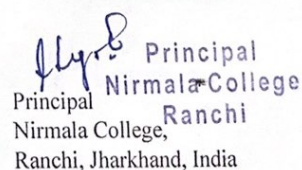 Principal
Nirmala College
Ranchi
Principal
Nirmala College,
Ranchi, Jharkhand, India